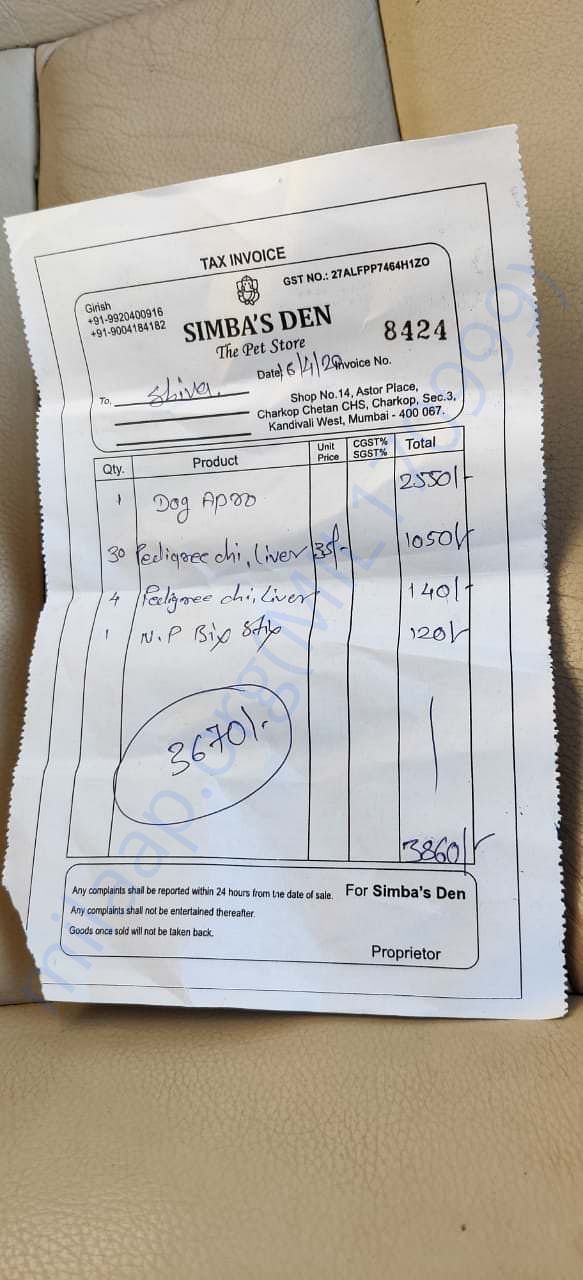 TAX INVOICE
GST NO.: 27ALFPP7464H1ZO
Girish
+91-9920400916
+91-9004184182
SIMBA'S DEN
The Pet Store
8424
Date 6/4/20 Invoice No.
To, Shiva
Shop No.14, Astor Place,
Charkop Chetan CHS, Charkop, Sec.3,
Kandivali West, Mumbai - 400 067.
Qty. Product Unit Price CGST% SGST% Total
1 Dog Apro 2550/-
30 Pedigree chi, Liver 35/- 1050/-
4 Pedigree chi, Liver 140/-
1 N.P Bix Stix 120/-
3670/-
3860/-
Any complaints shall be reported within 24 hours from the date of sale. For Simba's Den
Any complaints shall not be entertained thereafter.
Goods once sold will not be taken back.
Proprietor